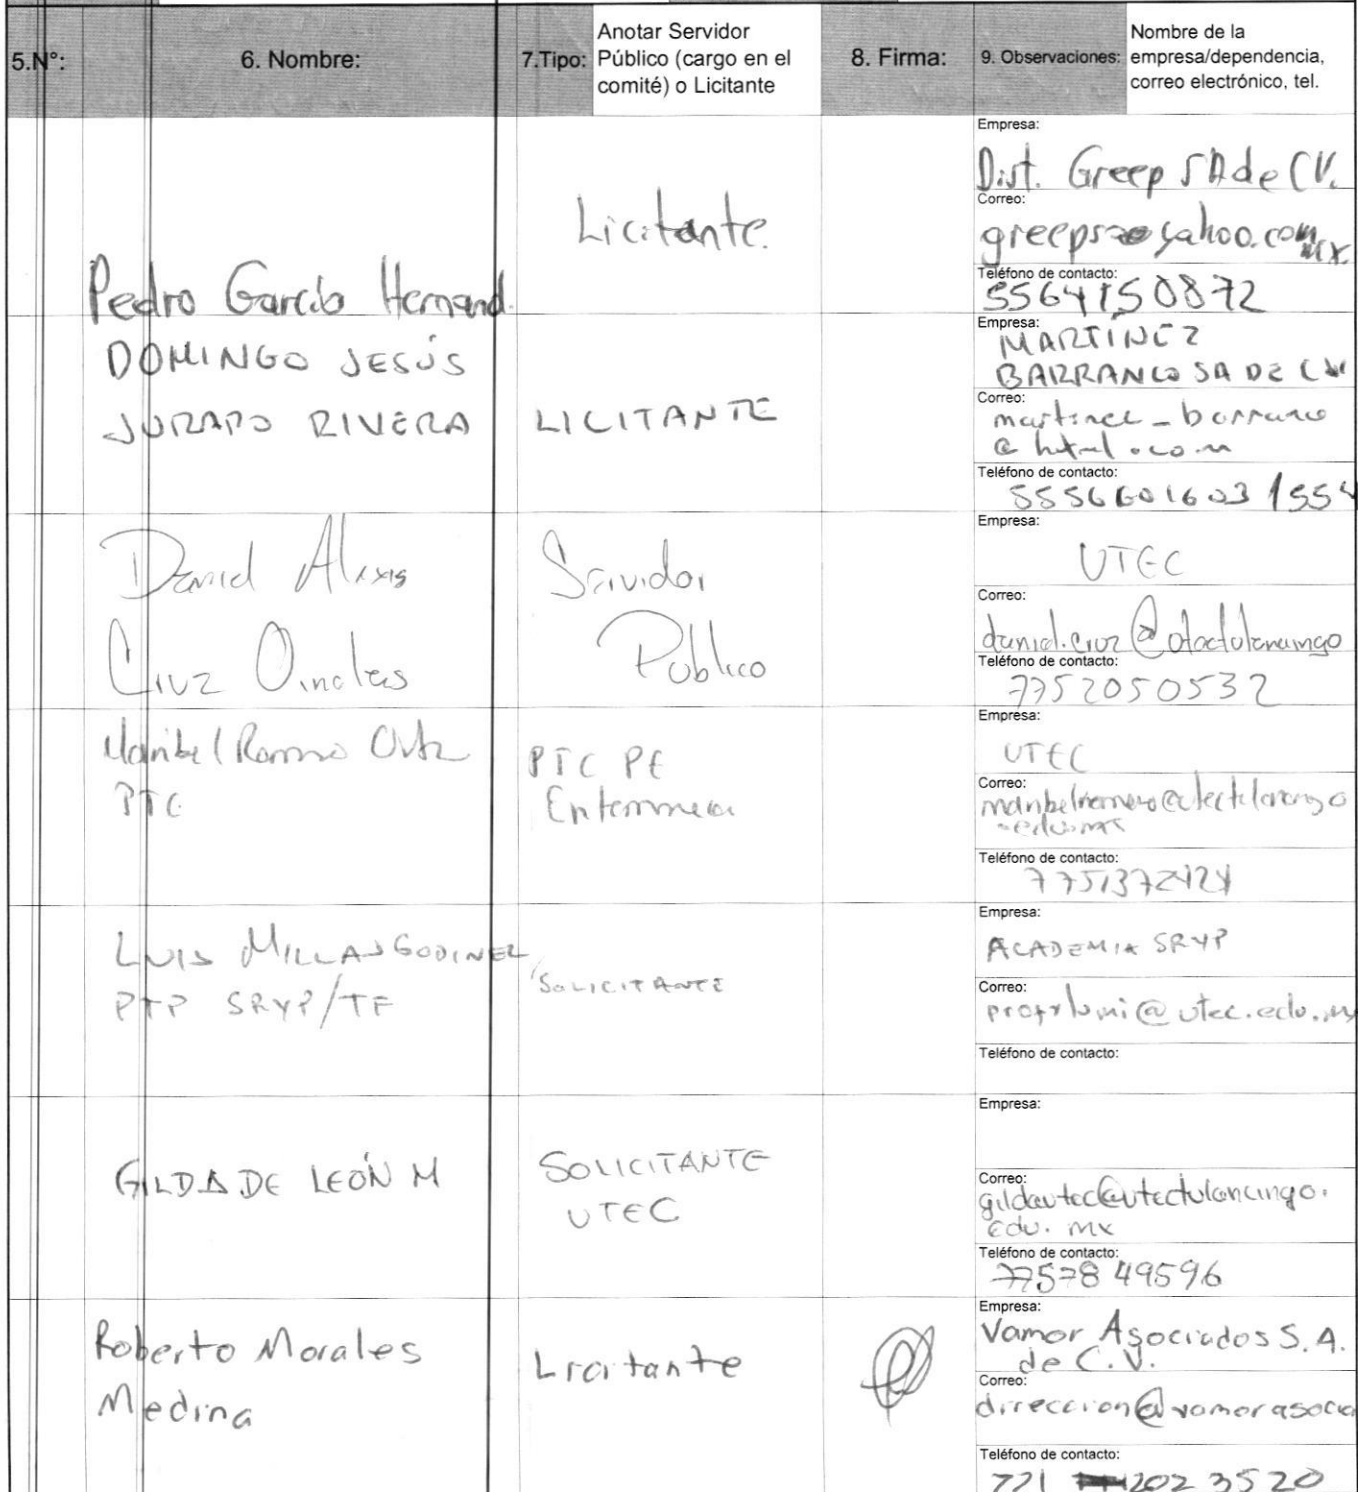 5.N°:
6. Nombre:
7.Tipo:
Anotar Servidor
Público (cargo en el
comité) o Licitante
8. Firma:
9. Observaciones:
Nombre de la
empresa/dependencia,
correo electrónico, tel.
Pedro García Hernand.
Licitante.
Empresa:
Dist. Greep SA de CV.
Correo:
Teléfono de contacto:
5564150872
DOMINGO JESÚS
JURADO RIVERA
LICITANTE
Empresa:
MARTINEZ
BARRANCO SA DE CV
Correo:
Teléfono de contacto:
5556601603 /554
Daniel Alexis
Cruz
Servidor
Público
Empresa:
UTEC
Correo:
Teléfono de contacto:
7752050532
Maribel
PTC
PTC PE
Empresa:
UTEC
Correo:
Teléfono de contacto:
LUIS MILLAS GODINEZ
PTP SRYP/TF
SOLICITANTE
Empresa:
ACADEMIA SRYP
Correo:
Teléfono de contacto:
GILDA DE LEÓN M
SOLICITANTE
UTEC
Empresa:
Correo:
gildautec@utectulancingo.
edu.mx
Teléfono de contacto:
77578 49596
Roberto Morales
Medina
Licitante
Empresa:
Vamor Asociados S.A.
de C.V.
Correo:
direccion@vamorasocia
Teléfono de contacto:
771 202 3520